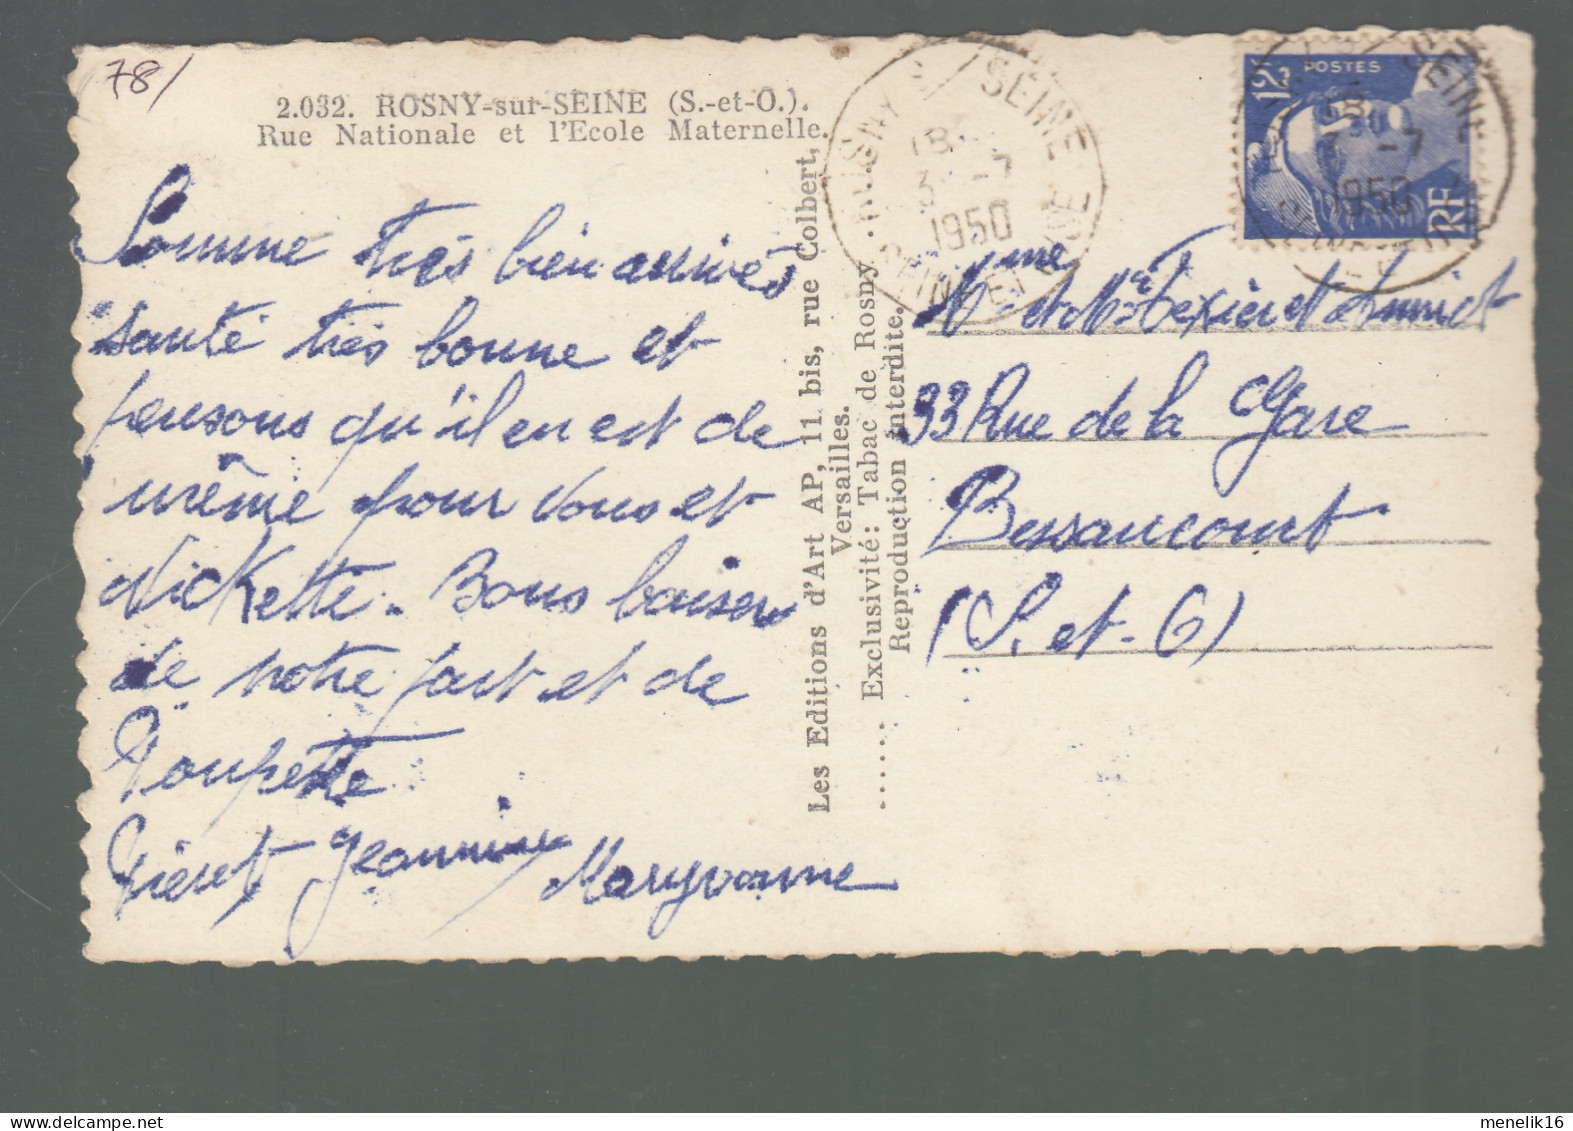 78/
2.032. ROSNY-sur-SEINE (S.-et-O.).
Rue Nationale et l'Ecole Maternelle.
Somme très bien arrivés
santé très bonne et
pensons qu'il en est de
même pour vous et
Nickette. Bons baisers
de notre part et de
Poupette
Jeannine Maryvonne
Les Editions d'Art AP, 11 bis, rue Colbert,
Versailles.
Exclusivité: Tabac de Rosny.
Reproduction interdite.
ROSNY S SEINE
18
3 -7
1950
SEINE ET OISE
12F POSTES
RF
SEINE
18
3 -7
1950
Mme et Mr Texier et
33 Rue de la Gare
Bessancourt
(S. et-O)
menelik16